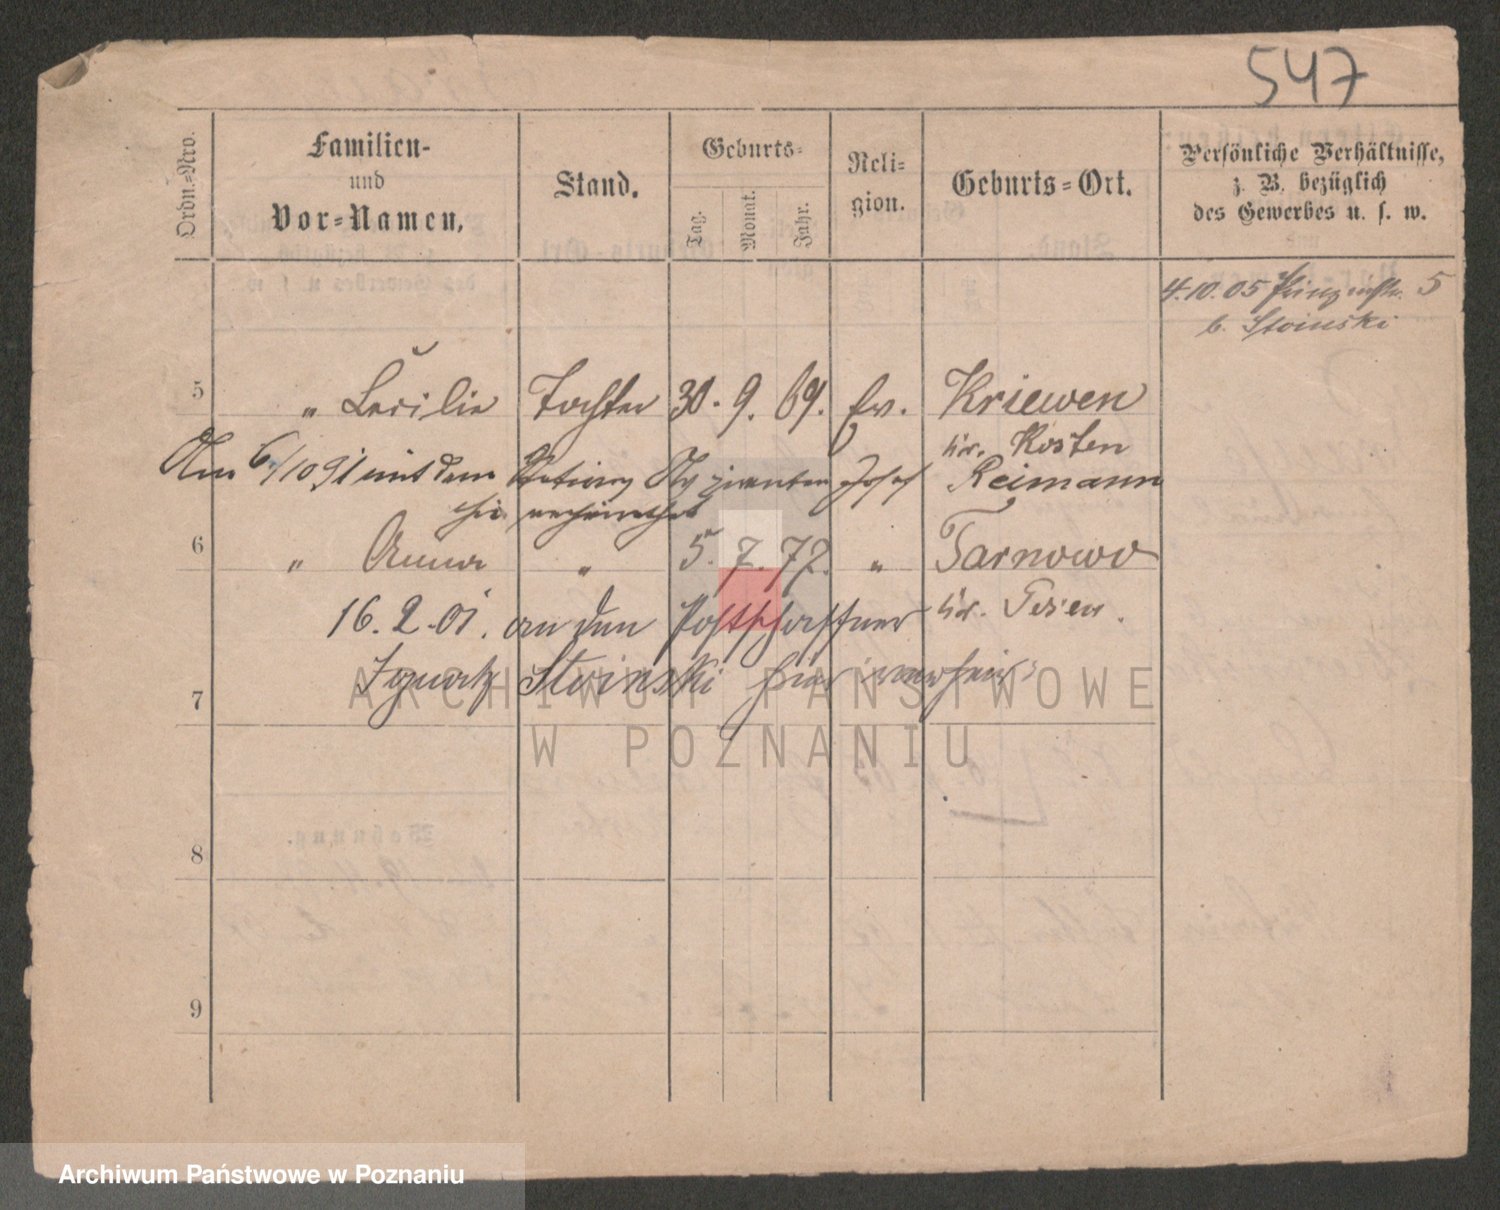 547
Ordn.-Nro.
Familien-
und
Vor-Namen,
Stand.
Geburts-
Tag.
Monat.
Jahr.
Reli-
gion.
Geburts-Ort.
Persönliche Verhältnisse,
z. B. bezüglich
des Gewerbes u. s. w.
4.10.05 Prinzenstr. 5
b. Stoinski
5 " Cecilie Tochter 30. 9. 69. Ev. Kriewen
Kr. Kosten
Am 6/10 91 mit dem Stations Josef Reimann
hier verheirathet
6 " Anna " 5. 7. 72. " Tarnowo
16.2.01. an den Postschaffner Kr. Posen.
7 Ignatz Stoinski hier verheir
8
9
ARCHIWUM PAŃSTWOWE
W POZNANIU
Archiwum Państwowe w Poznaniu